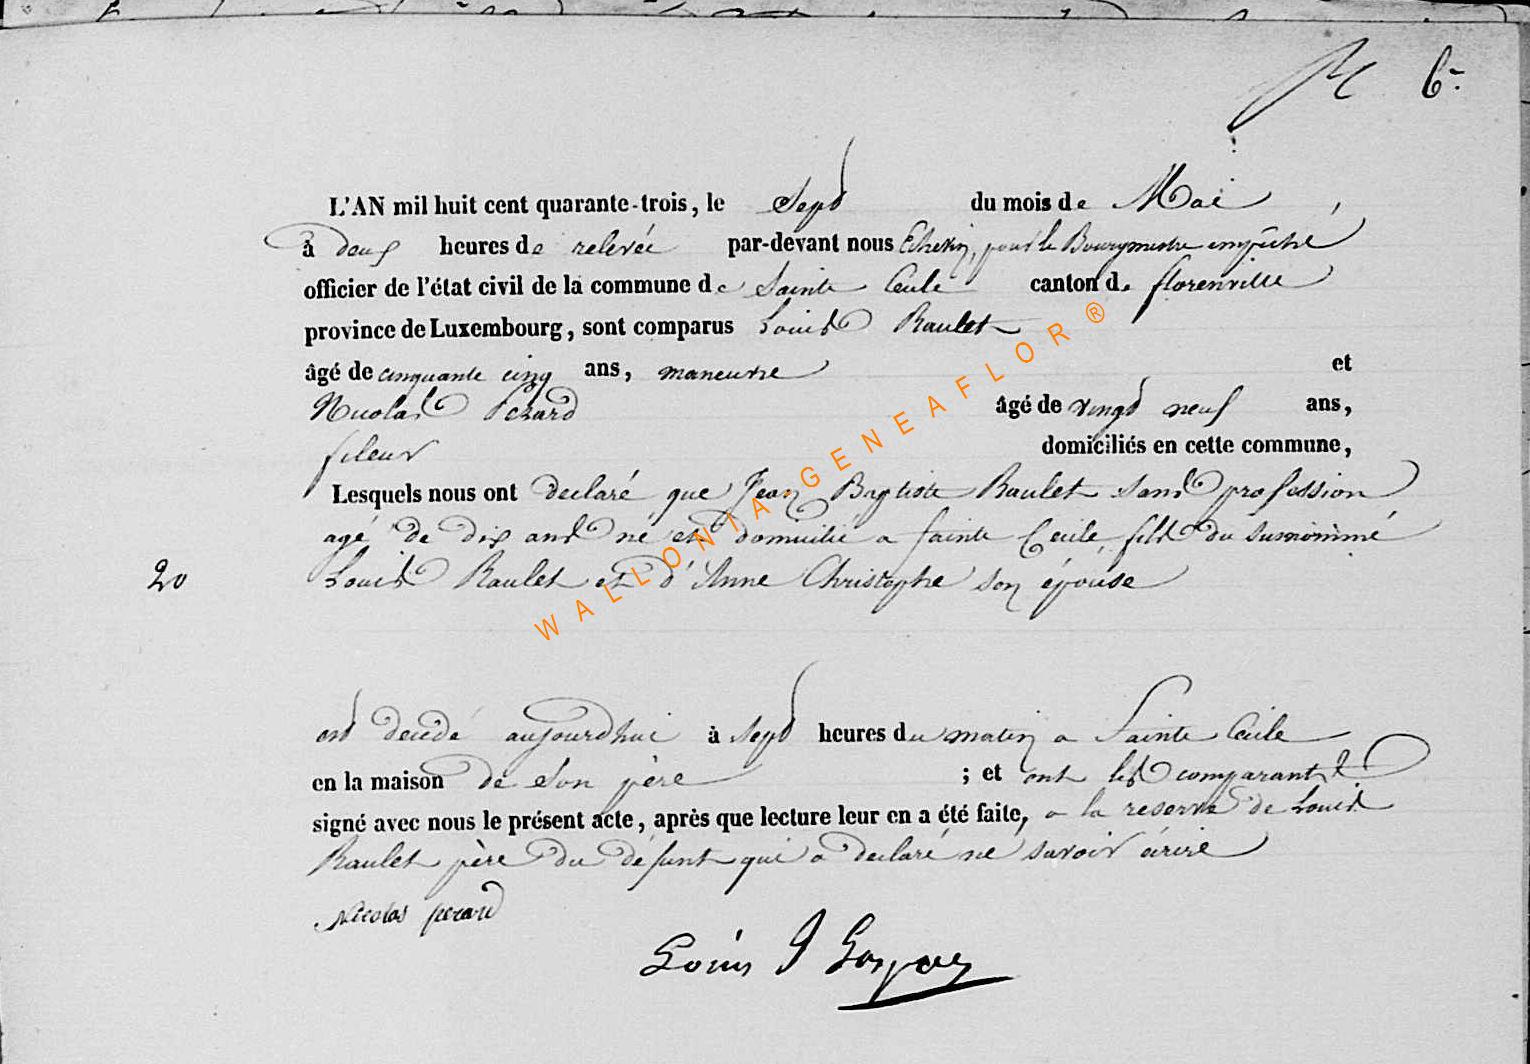 6
L'AN mil huit cent quarante-trois, le Sept du mois de Mai,
à deux heures de relevée par-devant nous Echevin, pour le Bourgmestre empêché
officier de l'état civil de la commune de Sainte Cecile canton de florenville
province de Luxembourg, sont comparus Louis Raulet
âgé de cinquante cinq ans, maneuvre et
Nicolas Pezard âgé de vingt neuf ans,
fileur domiciliés en cette commune,
Lesquels nous ont declaré que Jean Baptiste Raulet sans profession
agé de dix ans né et domicilié a Sainte Cecile, fils du susnommé
20 Louis Raulet et d'Anne Christophe son épouse
est decédé aujourdhui à Sept heures du matin a Sainte Cécile
en la maison de son père ; et ont les comparants
signé avec nous le présent acte, après que lecture leur en a été faite, a la reserve de Louis
Raulet père du défunt qui a declaré ne savoir écrire
Nicolas pezard
Louis J
WALLONIA-GENEAFLOR ®